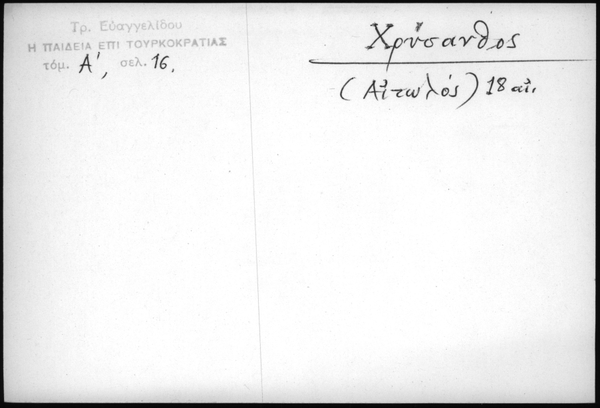 Τρ. Εὐαγγελίδου
Η ΠΑΙΔΕΙΑ ΕΠΙ ΤΟΥΡΚΟΚΡΑΤΙΑΣ
τόμ. Α', σελ. 16.
Χρύσανθος
(Αἰτωλός) 18 αἰ.